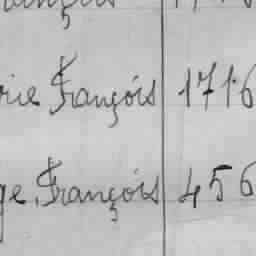 rie François 1716
ge, François 456